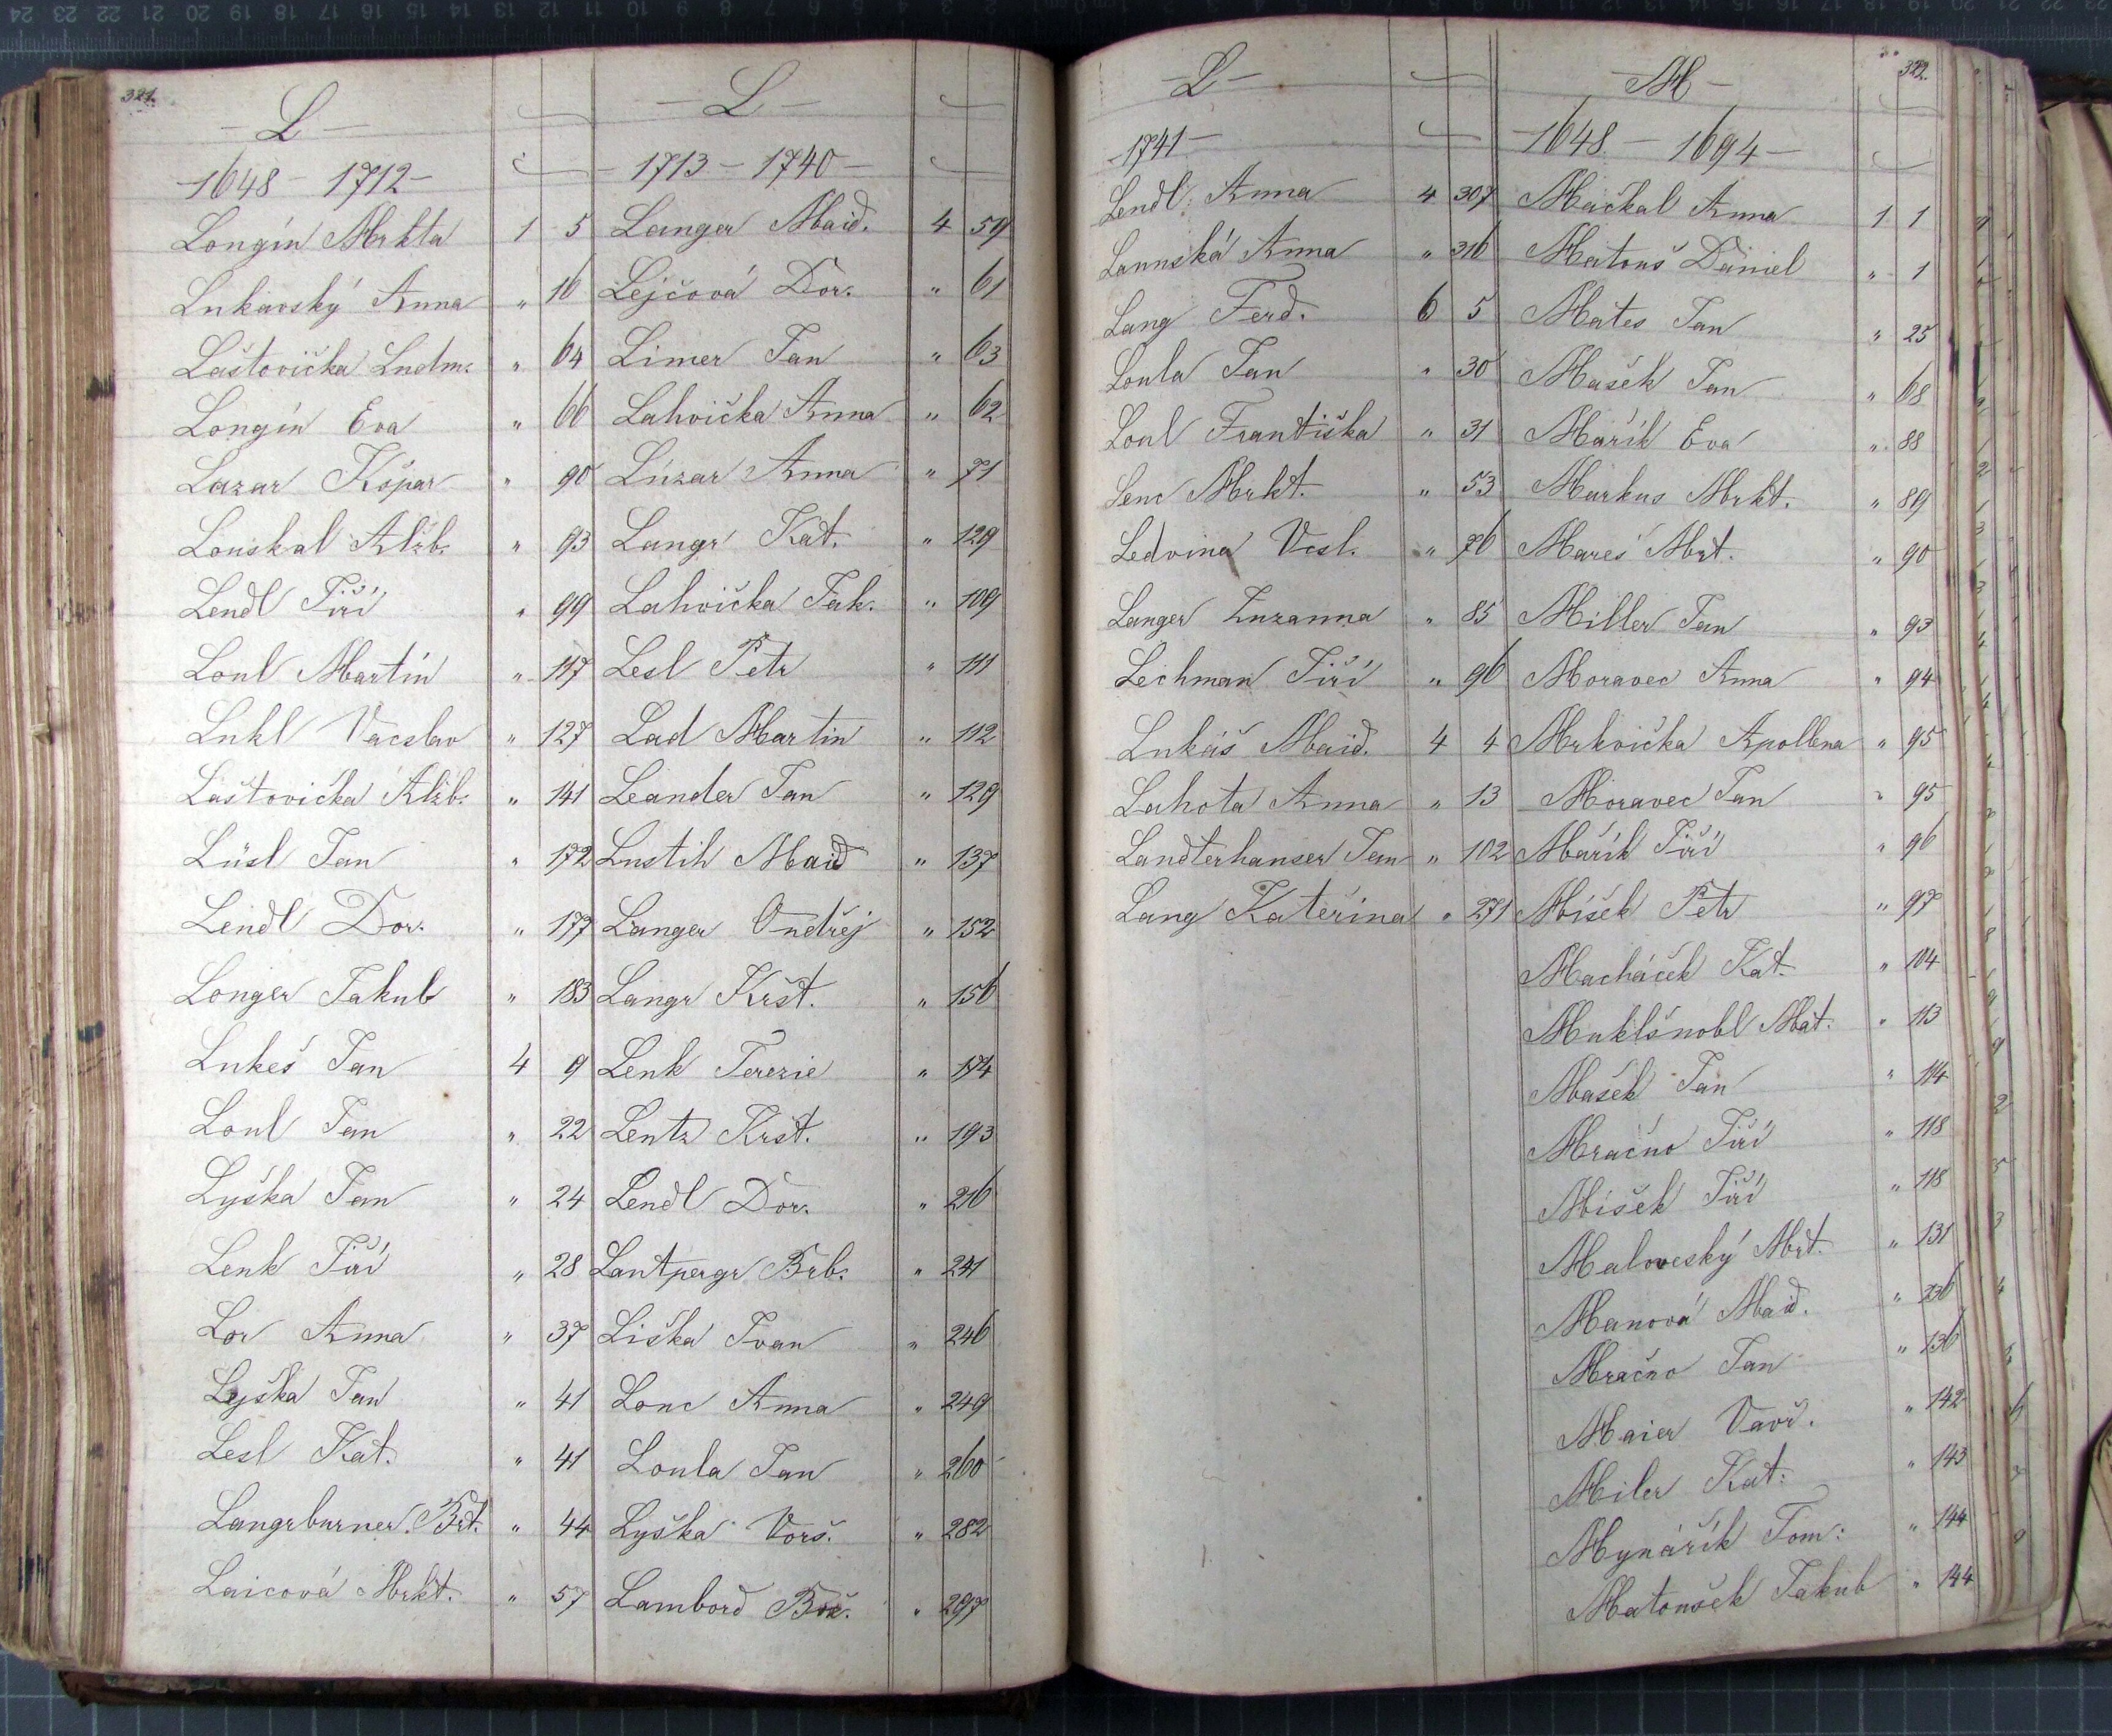 321.
- L -
- 1648 - 1712 -
Longin Mrkta 1 5
Lukavský Anna " 16
Laštovička Ludm. " 64
Longin Eva " 66
Lazar Kšpar " 90
Louskal Alžb. " 93
Lendl Jiří " 99
Loul Martin " 117
Lukl Vacslav " 127
Laštovička Alžb. " 141
Lüsl Jan " 172
Lendl Dor. " 177
Longer Jakub " 183
Lukeš Jan 4 9
Loul Jan " 22
Lyška Jan " 24
Lenk Jiří " 28
Lor Anna " 37
Lejška Jan " 41
Lesl Kat. " 41
Langrburner Brt. " 44
Laicová Mrkt. " 57
- L -
- 1713 - 1740 -
Langer Maid. 4 59
Lejčová Dor. " 61
Limer Jan " 63
Lahvička Anna " 62
Luzar Anna " 71
Langr Kat. " 129
Lahvička Jak. " 109
Lesl Petr " 111
Lad Martin " 112
Leander Jan " 129
Lustih Maid " 137
Langer Ondřej " 152
Langr Kršt. " 156
Lenk Terezie " 174
Lentz Kršt. " 193
Lendl Dor. " 216
Lantpergr Brb. " 241
Liška Ivan " 246
Lonc Anna " 249
Loula Jan " 260
Lyška Vorš. " 282
Lambord " 297
- L -
- 1741 -
Lendl Anna 4 307
Lannská Anna " 316
Lang Ferd. 6 5
Loula Jan " 30
Loul Františka " 31
Lenc Mrkt. " 53
Ledvina Vcsl. " 76
Langer Zuzanna " 85
Lechman Jiří " 96
Lukáš Maid. 4 4
Lahota Anna " 13
Landterhanser Jan " 102
Lang Kateřina " 271
322.
- M -
- 1648 - 1694 -
Mačkal Anna 1 1
Matouš Daniel " 1
Mates Jan " 25
Mašek Jan " 68
Mařík Eva " 88
Markus Mrkt. " 89
Mareš Mrt. " 90
Miller Jan " 93
Moravec Anna " 94
Mrkvička Apollena " 95
Moravec Jan " 95
Mařík Jiří " 96
Míšek Petr " 97
Macháček Kat. " 104
Muklšnobl Mat. " 113
Mašek Jan " 114
Mračno Jiří " 118
Míšek Jiří " 118
Maloveský Mrt. " 131
Manová Maid. " 136
Mračno Jan " 136
Maier Vavř. " 142
Miler Kat. " 143
Mynářík Tom: " 144
Matoušek Jakub " 144